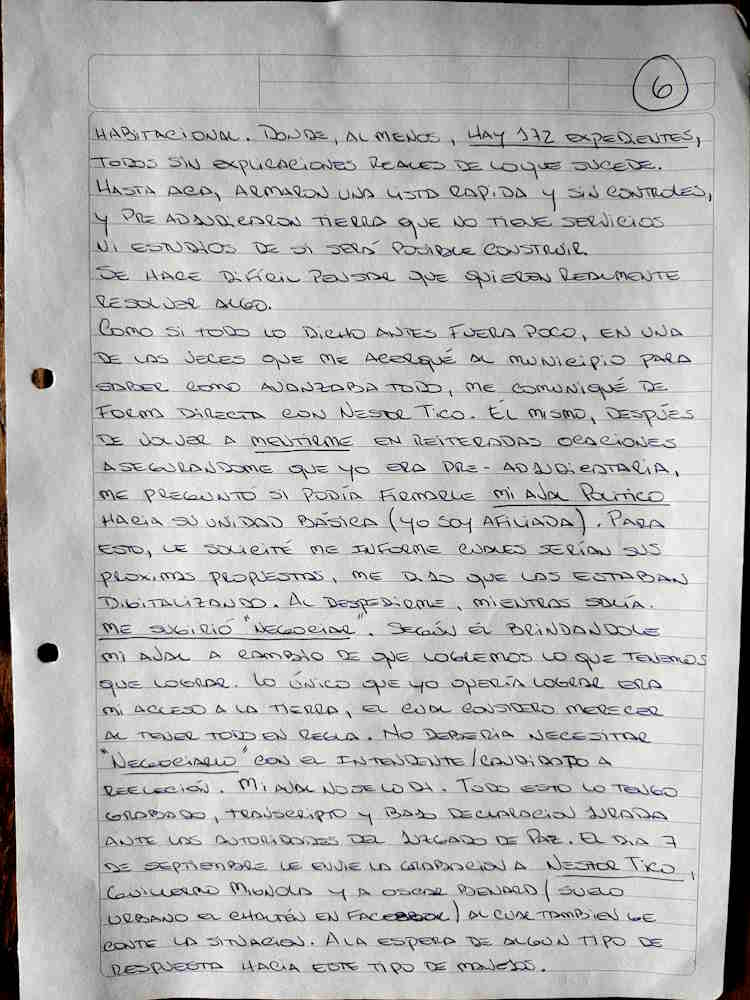 6
HABITACIONAL. DONDE, AL MENOS, HAY 172 EXPEDIENTES,
TODOS SIN EXPLICACIONES REALES DE LO QUE SUCEDE.
HASTA ACA, ARMARON UNA LISTA RAPIDA Y SIN CONTROLES,
Y PRE ADJUDICARON TIERRA QUE NO TIENE SERVICIOS
NI ESTUDIOS DE SI SERÁ POSIBLE CONSTRUIR.
SE HACE DIFÍCIL PENSAR QUE QUIEREN REALMENTE
RESOLVER ALGO.
COMO SI TODO LO DICHO ANTES FUERA POCO, EN UNA
DE LAS VECES QUE ME ACERQUÉ AL MUNICIPIO PARA
SABER COMO AVANZABA TODO, ME COMUNIQUÉ DE
FORMA DIRECTA CON NESTOR TICO. ÉL MISMO, DESPUÉS
DE VOLVER A MENTIRME EN REITERADAS OCACIONES
ASEGURANDOME QUE YO ERA PRE-ADJUDICATARIA,
ME PREGUNTÓ SI PODÍA FIRMARLE MI AVAL POLITICO
HACIA SU UNIDAD BÁSICA (YO SOY AFILIADA). PARA
ESTO, LE SOLICITÉ ME INFORME CUALES SERÍAN SUS
PROXIMAS PROPUESTAS, ME DIJO QUE LAS ESTABAN
DIGITALIZANDO. AL DESPEDIRME, MIENTRAS SALÍA.
ME SUGIRIÓ "NEGOCIAR". SEGÚN ÉL BRINDANDOLE
MI AVAL A CAMBIO DE QUE LOGREMOS LO QUE TENEMOS
QUE LOGRAR. LO ÚNICO QUE YO QUERÍA LOGRAR ERA
MI ACCESO A LA TIERRA, EL CUAL CONSIDERO MERECER
AL TENER TODO EN REGLA. NO DEBERIA NECESITAR
"NEGOCIARLO" CON EL INTENDENTE/CANDIDATO A
REELECIÓN. MI AVAL NO SE LO DI. TODO ESTO LO TENGO
GRABADO, TRANSCRIPTO Y BAJO DECLARACION JURADA
ANTE LAS AUTORIDADES DEL JUZGADO DE PAZ. EL DIA 7
DE SEPTIEMBRE LE ENVIE LA GRABACION A NESTOR TICO,
GUILLERMO MIGNOLA Y A OSCAR BENARD (SUELO
URBANO EL CHALTÉN EN FACEBOOK) AL CUAL TAMBIEN LE
CONTE LA SITUACION. A LA ESPERA DE ALGUN TIPO DE
RESPUESTA HACIA ESTE TIPO DE MANEJOS.